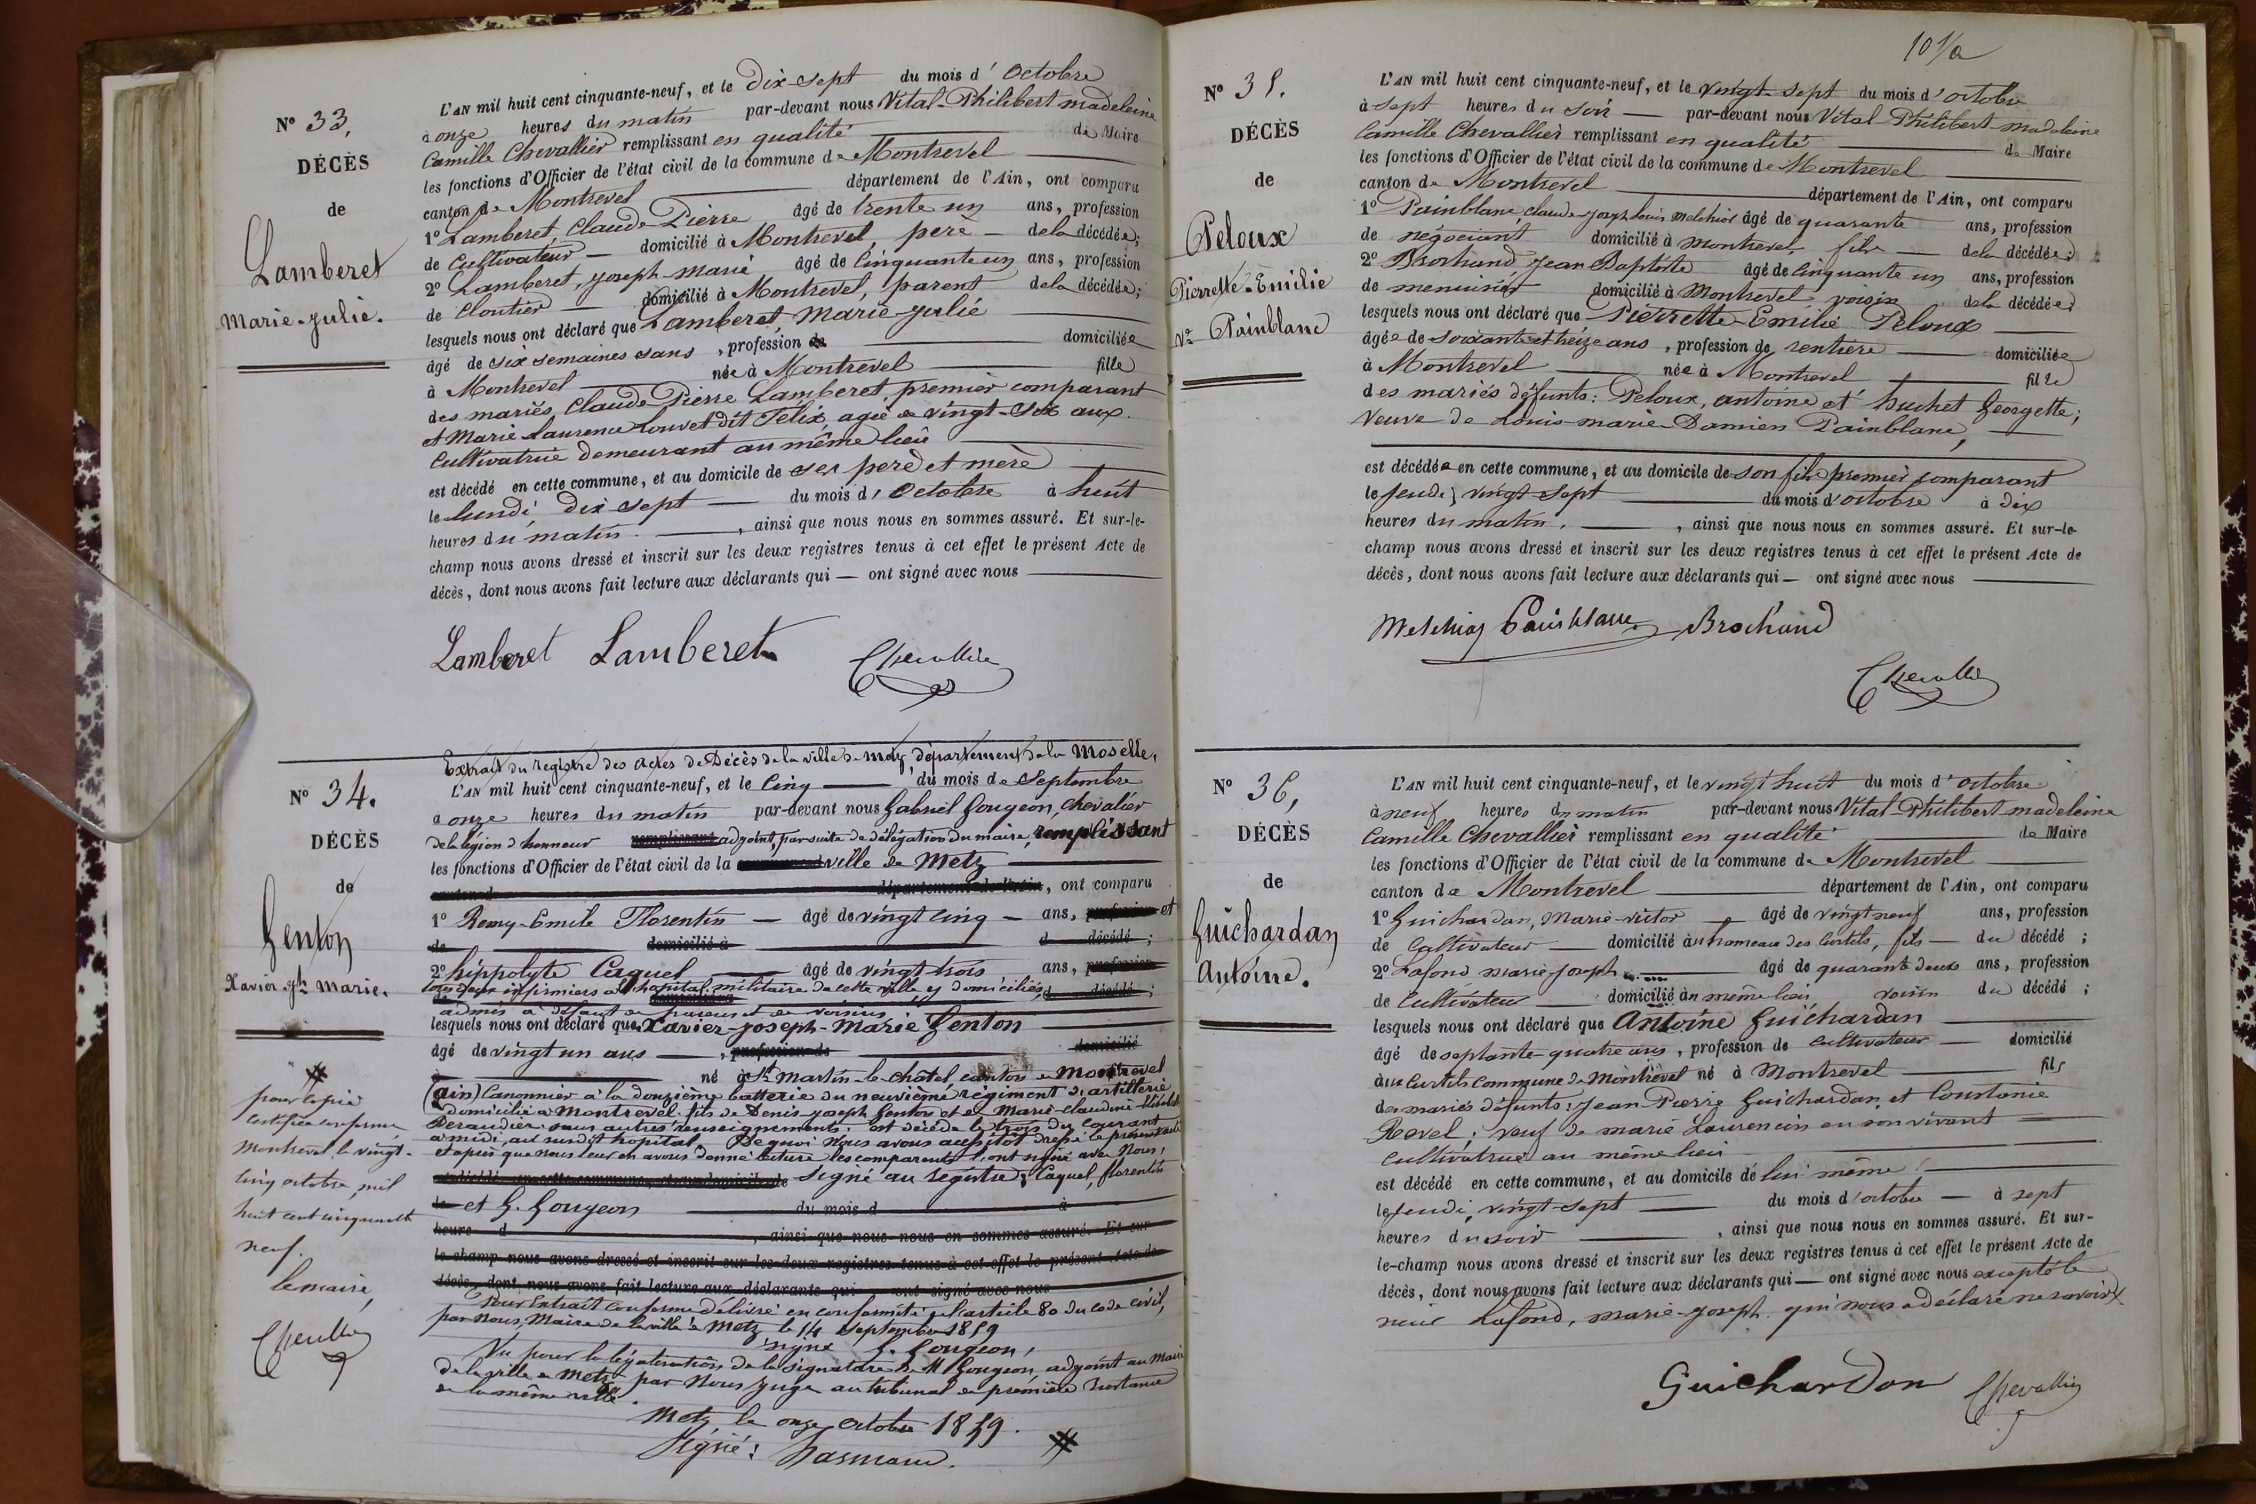 N° 33,
DÉCÈS
de
Lamberet
Marie-Julie.
L'AN mil huit cent cinquante-neuf, et le Dix-sept du mois d'Octobre
à onze heures du matin par-devant nous Vital-Philibert madeleine
Camille Chevallier remplissant en qualité de Maire
les fonctions d'Officier de l'état civil de la commune de Montrevel
canton de Montrevel département de l'Ain, ont comparu
1° Lamberet, Claude-Pierre âgé de trente un ans, profession
de Cultivateur domicilié à Montrevel, père de la décédée;
2° Lamberet, Joseph-marie âgé de Cinquante un ans, profession
de Cloutier domicilié à Montrevel, parent de la décédée;
lesquels nous ont déclaré que Lamberet, Marie-Julie
âgé de six semaines sans, profession de domiciliée
à Montrevel née à Montrevel fille
des mariés, Claude-Pierre Lamberet, premier comparant
et Marie Laurence Louvet dit Félix, agée de vingt-six ans
Cultivatrice demeurant au même lieu
est décédé en cette commune, et au domicile de ses père et mère
le lundi, dix sept du mois d'Octobre à huit
heures du matin. , ainsi que nous nous en sommes assuré. Et sur-le-
champ nous avons dressé et inscrit sur les deux registres tenus à cet effet le présent Acte de
décès, dont nous avons fait lecture aux déclarants qui — ont signé avec nous
Lamberet Lamberet Chevallier
N° 34.
DÉCÈS
de
Genton
Xavier Jh Marie.
#
pour copie
certifiée conforme
Montrevel, le vingt-
cinq octobre, mil
huit cent cinquante
neuf.
le maire,
Chevallier
Extrait du registre des actes de Décès de la ville de Metz, département de la Moselle,
L'AN mil huit cent cinquante-neuf, et le Cinq du mois de Septembre
à onze heures du matin par-devant nous Gabriel Gougeon, Chevalier
de la légion d'honneur remplissant adjoint, par suite de délégation du maire, remplissant
les fonctions d'Officier de l'état civil de la commune d ville de Metz
canton d département de l'Ain, ont comparu
1° Remy-Emile Florentin — âgé de vingt cinq — ans, profession et
de domicilié à d décédé;
2° hippolyte Caquel âgé de vingt trois ans, profession
tous deux infirmiers à l'hopital militaire de cette ville, y domiciliés, d décédé;
admis à défaut de parens et de voisins
lesquels nous ont déclaré que Xavier-Joseph-Marie Genton
âgé de vingt un ans, profession de domicilié
né à St Martin-le-châtel, canton de Montrevel
(ain) Canonnier à la douzième batterie du neuvième régiment d'artillerie
domicilié à Montrevel. fils de Denis-Joseph Genton et de Marie-Claudine
Peraudier sans autres renseignements. est décédé le trois du courant
à midi, au susdit hopital. De quoi Nous avons aussitot dressé le présent acte
et après que nous leur en avons donné lecture les comparents l'ont signé avec Nous,
est décédé en cette commune, et au domicile de signé au registre: Caquel, florentin
le et G. Gougeon du mois d à
heure d , ainsi que nous nous en sommes assuré. Et sur
le champ nous avons dressé et inscrit sur les deux registres tenus à cet effet le présent Acte de
décès, dont nous avons fait lecture aux déclarants qui ont signé avec nous
Pour Extrait conforme délivré en conformité de l'article 80 du code civil,
par nous, Maire de la ville de Metz, le 14 septembre 1859
signé G. Gougeon,
Vu pour la légalisation de la signature de M Gougeon, adjoint au Maire
de la ville de Metz par Nous Juge au tribunal de première Instance
de la même ville.
Metz, le onze octobre 1859.
Signé:
#
10 1/a
N° 35.
DÉCÈS
de
Peloux
Pierrette-Emilie
Ve Painblanc
L'AN mil huit cent cinquante-neuf, et le vingt-sept du mois d'octobre
à sept heures du soir — par-devant nous Vital-Philibert-madeleine
Camille Chevallier remplissant en qualité de Maire
les fonctions d'Officier de l'état civil de la commune de Montrevel
canton de Montrevel département de l'Ain, ont comparu
1° Painblanc, claude-joseph louis melchior âgé de quarante ans, profession
de négociant domicilié à montrevel, fils — de la décédée;
2° Brochand, Jean Baptiste âgé de cinquante un ans, profession
de menuisier domicilié à Montrevel, voisin de la décédée;
lesquels nous ont déclaré que Pierrette-Emilie Peloux
âgée de soixante et treize ans, profession de rentière domiciliée
à Montrevel née à Montrevel fille
des mariés défunts: Peloux, antoine et huchet Georgette;
Veuve de Louis-marie-Damien Painblanc,
est décédée en cette commune, et au domicile de son fils premier comparant
le jeudi, vingt-sept du mois d'octobre à dix
heures du matin. , ainsi que nous nous en sommes assuré. Et sur-le-
champ nous avons dressé et inscrit sur les deux registres tenus à cet effet le présent Acte de
décès, dont nous avons fait lecture aux déclarants qui — ont signé avec nous
Melchior Painblanc Brochand
Chevallier
N° 36,
DÉCÈS
de
Guichardan
Antoine.
L'AN mil huit cent cinquante-neuf, et le vingt huit du mois d'octobre
à neuf heures du matin par-devant nous Vital-Philibert-madeleine
Camille Chevallier remplissant en qualité de Maire
les fonctions d'Officier de l'état civil de la commune de Montrevel
canton de Montrevel département de l'Ain, ont comparu
1° Guichardan, Marie-victor — âgé de vingt neuf ans, profession
de Cultivateur — domicilié au hameau des Curtels, fils — du décédé;
2° Lafond marie-joseph âgé de quarante deux ans, profession
de Cultivateur domicilié au même lieu, voisin du décédé;
lesquels nous ont déclaré que Antoine Guichardan
âgé de septante-quatre ans, profession de cultivateur — domicilié
aux Curtels commune de Montrevel né à Montrevel fils
des mariés défunts: Jean-Pierre Guichardan et Courtonie
Revel; veuf de marie Laurencin en son vivant
cultivatrice au même lieu
est décédé en cette commune, et au domicile de lui même
le jeudi, vingt-sept du mois d'octobre — à sept
heures du soir , ainsi que nous nous en sommes assuré. Et sur-
le-champ nous avons dressé et inscrit sur les deux registres tenus à cet effet le présent Acte de
décès, dont nous avons fait lecture aux déclarants qui — ont signé avec nous excepté le
sieur Lafond, marie-joseph. qui nous a déclaré ne savoir
Guichardon Chevallier